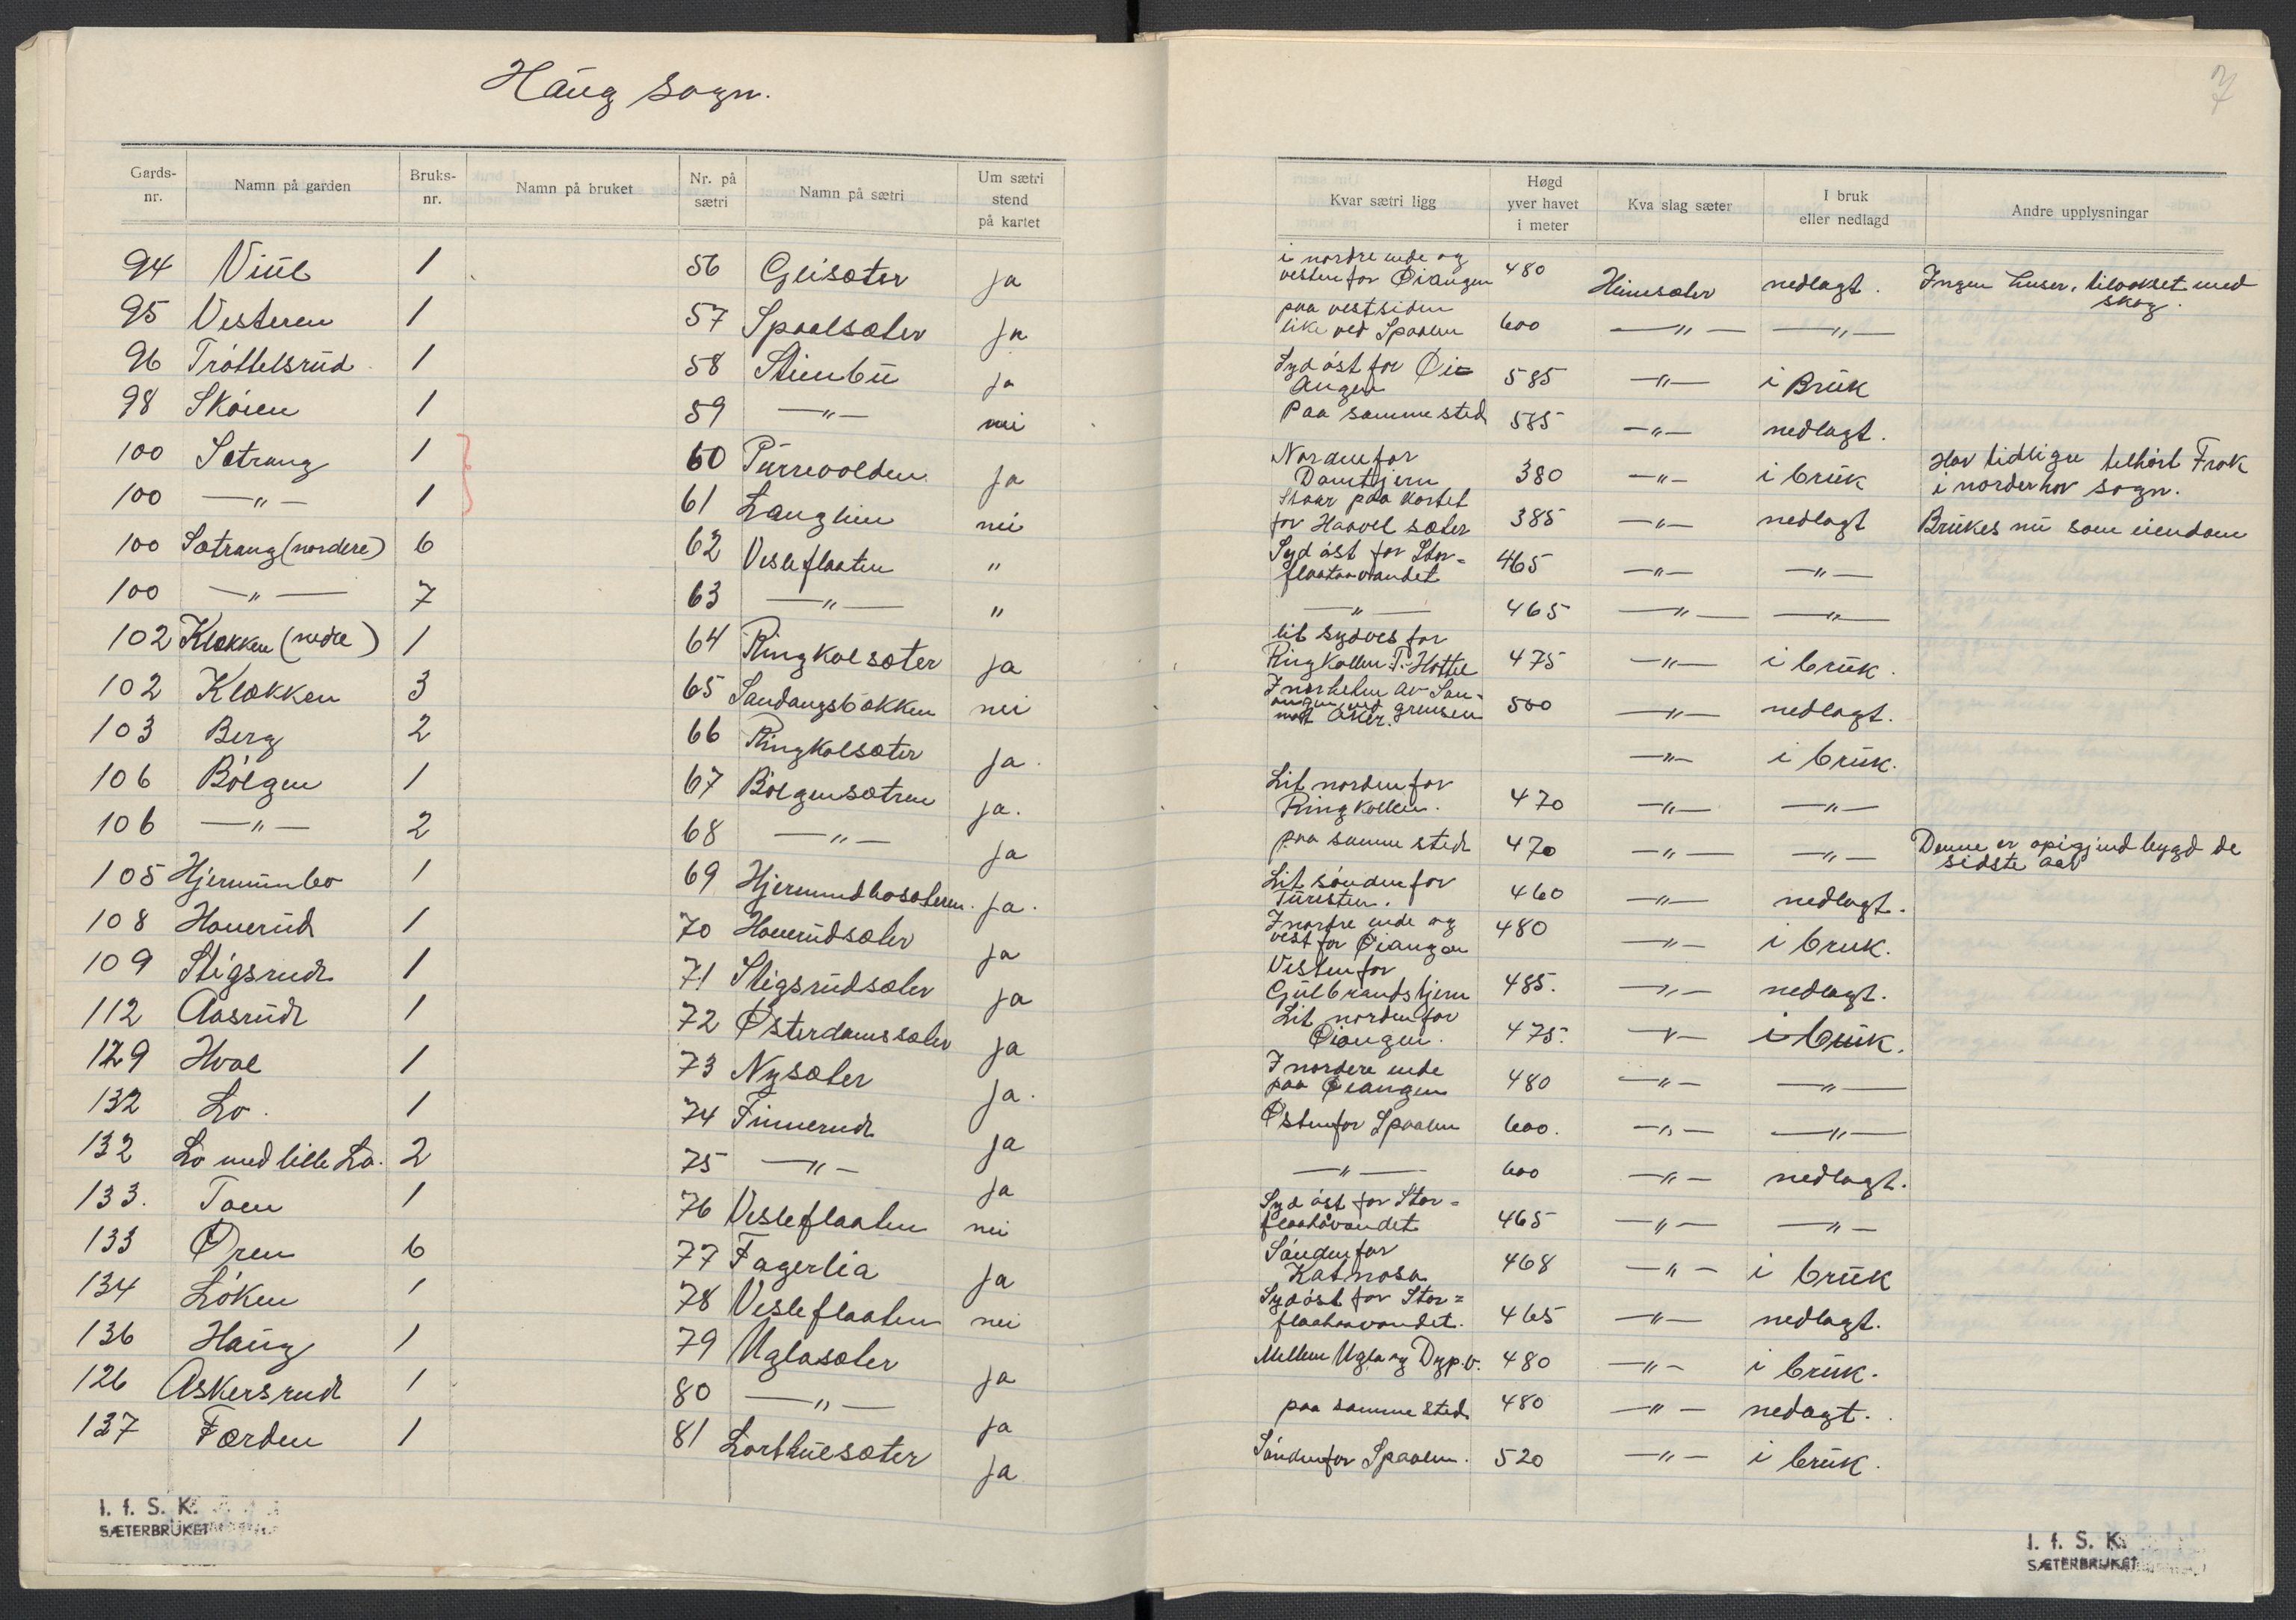 Haug sogn.
7
Gards-nr. Namn på garden Bruks-nr. Namn på bruket Nr. på sætri Namn på sætri Um sætri stend på kartet Kvar sætri ligg Høgd yver havet i meter Kva slag sæter I bruk eller nedlagd Andre upplysningar
94 Viul 1 56 Glisæter ja i nordre ende og vestenfor Øiangen 480 Heimsæter nedlagt. Ingen huser, tilvokset med skog.
95 Vesteren 1 57 Spaalsæter ja paa vestsiden like ved Spaalen 600 —"— —"—
96 Tróttelsrud 1 58 Stienbu ja Syd óst for Øi-Angen 585 —"— i Bruk
98 Skóien 1 59 —"— nei Paa samme sted 585 —"— nedlagt.
100 Sætrang 1 60 Purrevolden ja Nordenfor Damtjern 380 —"— i bruk Har tidligere tilhórt Frok i norderhov sogn.
100 —"— 1 61 Langlien nei Staar paa kartet for Haavel sæter 385 —"— nedlagt Brukes nu som eiendom
100 Sætrang (nordere) 6 62 Vesleflaaten " Syd óst for Stor-flaatavandet 465 —"— —"—
100 —"— 7 63 —"— " —"— 465 —"— —"—
102 Klækken (nedre) 1 64 Ringkolsæter ja lit sydves for Ringkollen T. Hottel 475 —"— i bruk.
102 Klækken 3 65 Sandangsbakken nei I norhelen av San-angen ved grensen mot Aker. 500 —"— nedlagt.
103 Berg 2 66 Ringkolsæter ja. —"— i bruk.
106 Bólgen 1 67 Bólgensætren ja. Lit nordenfor Ringkollen. 470 —"— —"—
106 —"— 2 68 —"— ja paa samme sted 470 —"— —"— Denne er opigjend bygd de sidste aar
105 Hjermunbo 1 69 Hjermundbosæteren. ja. Lit sóndenfor Turisten. 460 —"— nedlagt.
108 Haverud 1 70 Haverudsæter ja I nordre ende og vest for Øiangen 480 —"— i bruk.
109 Stigsrud 1 71 Stigsrudsæter ja Vestenfor Gulbrandstjern 485. —"— nedlagt.
112 Aasrud 1 72 Østerdamssæter ja Lit nordenfor Øiangen. 475. —"— i bruk.
129 Hval 1 73 Nysæter ja. I nordere ende paa Øiangen 480 —"— —"—
132 Lo. 1 74 Finnerud ja Østenfor Spaalen 600. —"— —"—
132 Lo med lille Lo. 2 75 —"— ja —"— 600 —"— nedlagt.
133. Toen 1 76 Vesleflaaten nei Syd óst for Stor-flaatavandet 465 —"— —"—
133 Øren 6 77 Fagerlia ja Sóndenfor Katnosa 468 —"— i bruk
134 Lóken 1 78 Vesleflaaten nei Syd óst for Stor-flaataavandet. 465 —"— nedlagt.
136 Haug 1 79 Uglasæter ja Mellem Ugla og Dyp.v. 480 —"— i bruk.
126 Askersrud 1 80 —"— ja paa samme sted 480 —"— nedagt.
137 Færden 1 81 Lorthulsæter ja Sóndenfor Spaalen. 520 —"— i bruk.
I. f. S. K.
SÆTERBRUKET
I. f. S. K.
SÆTERBRUKET